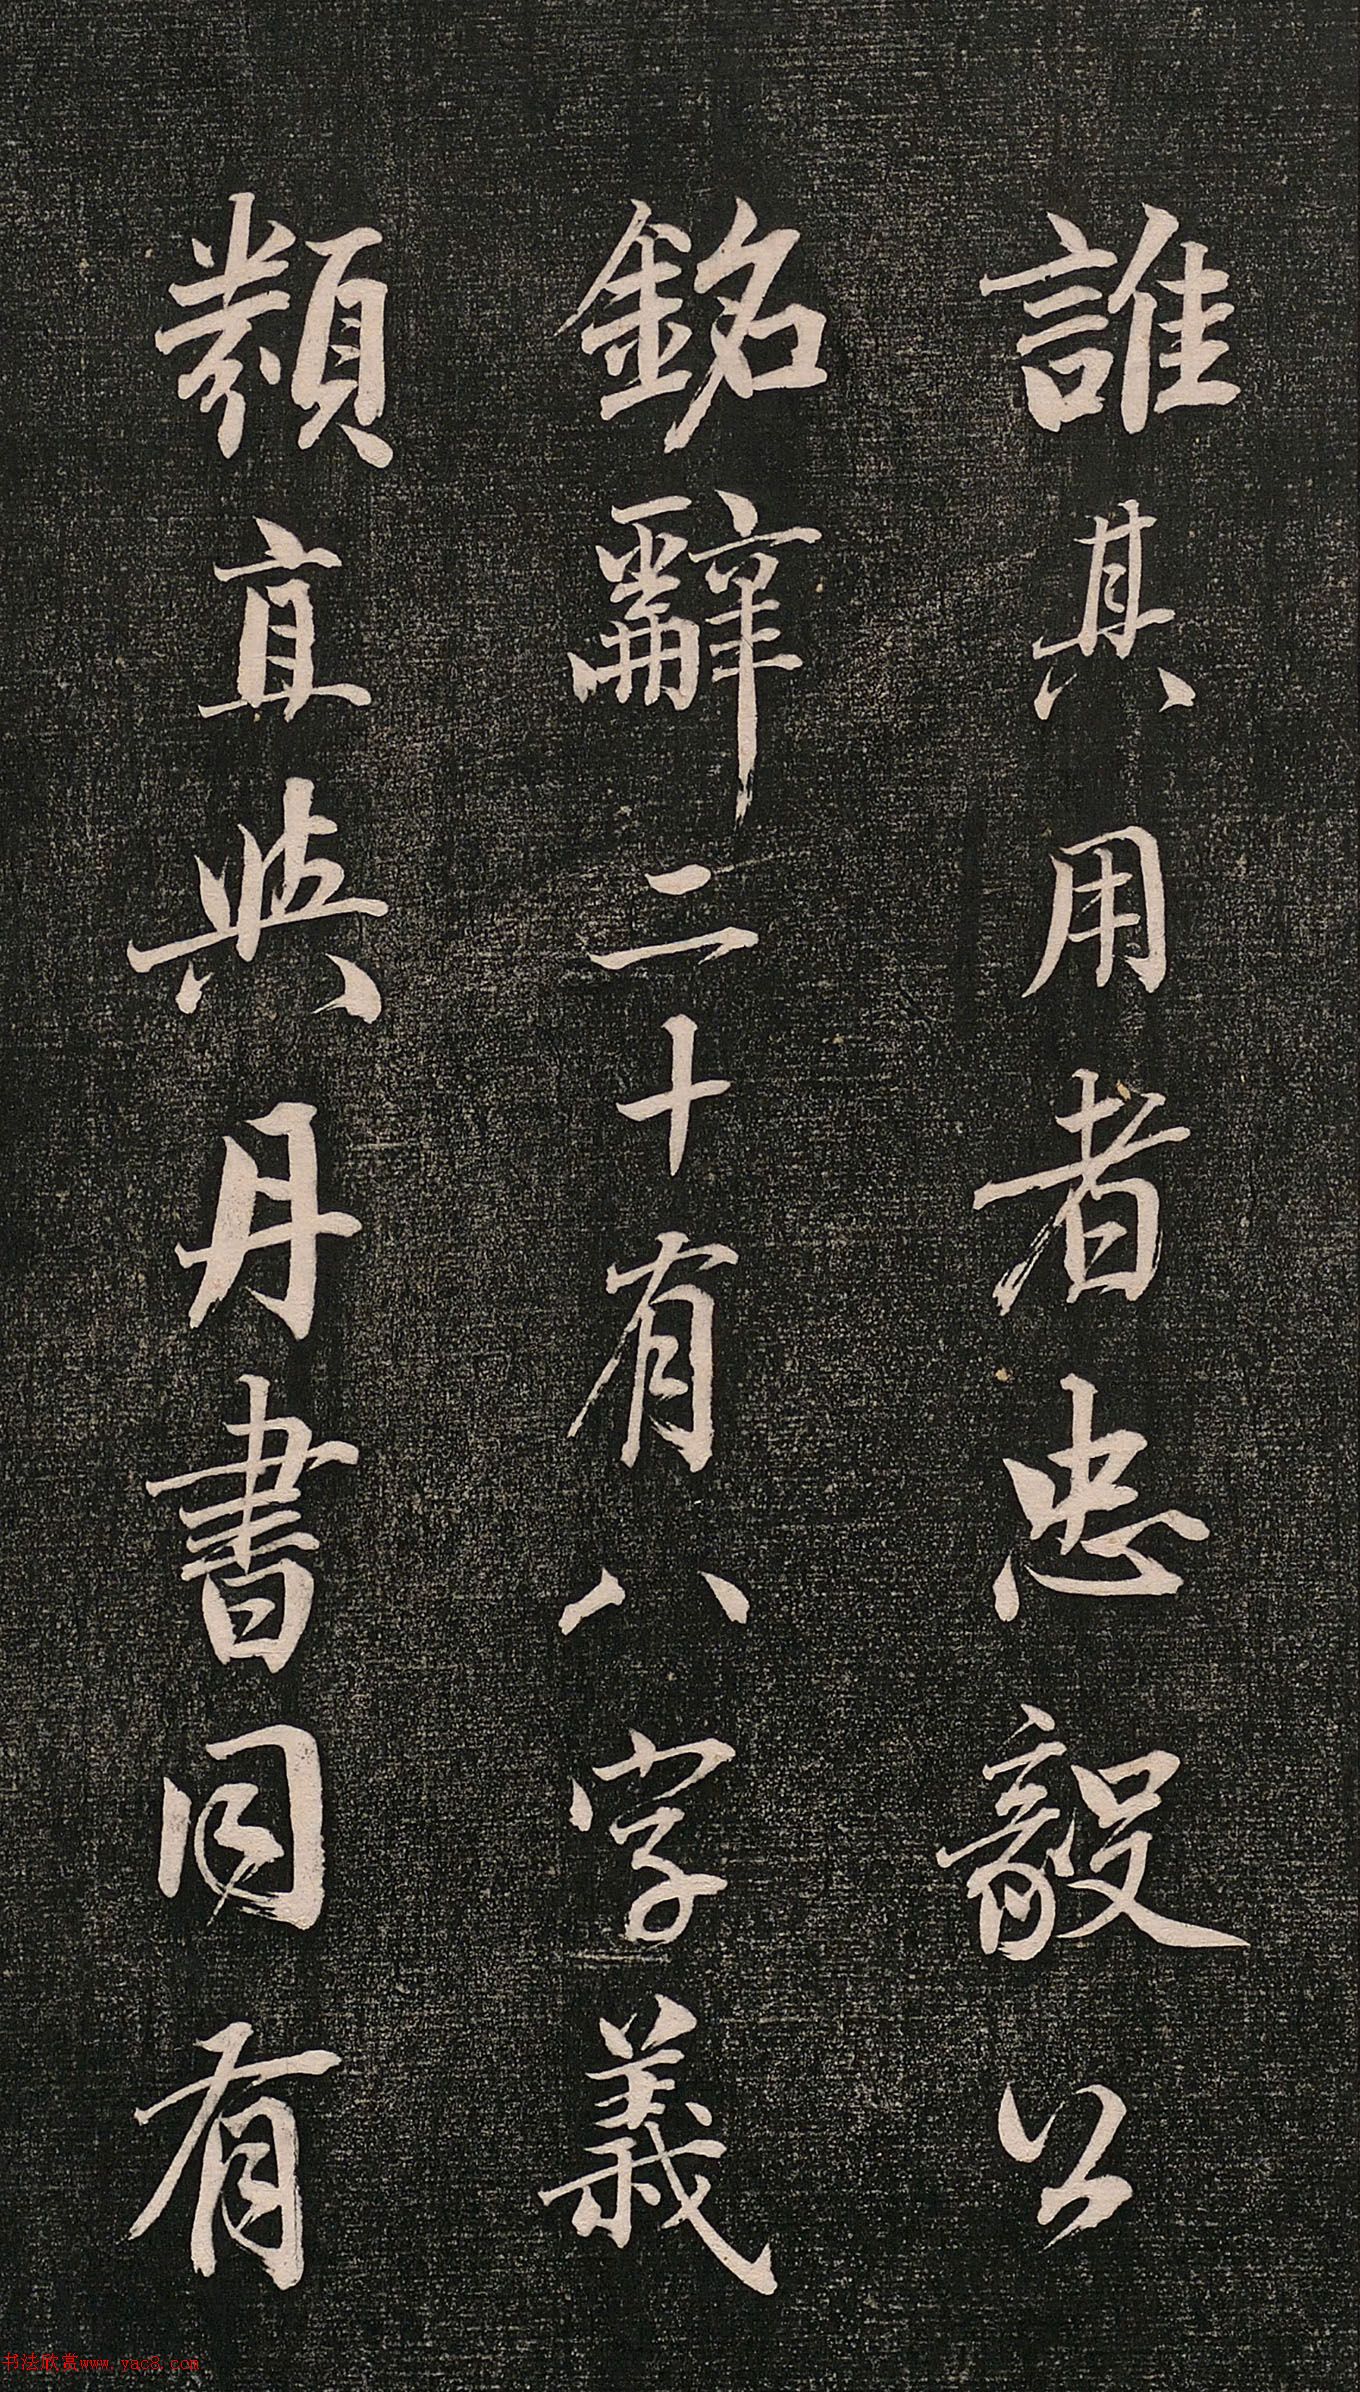 誰其用者忠毅公
銘辭二十有八字義
類直與丹書同有
书法欣赏www.yac8.com